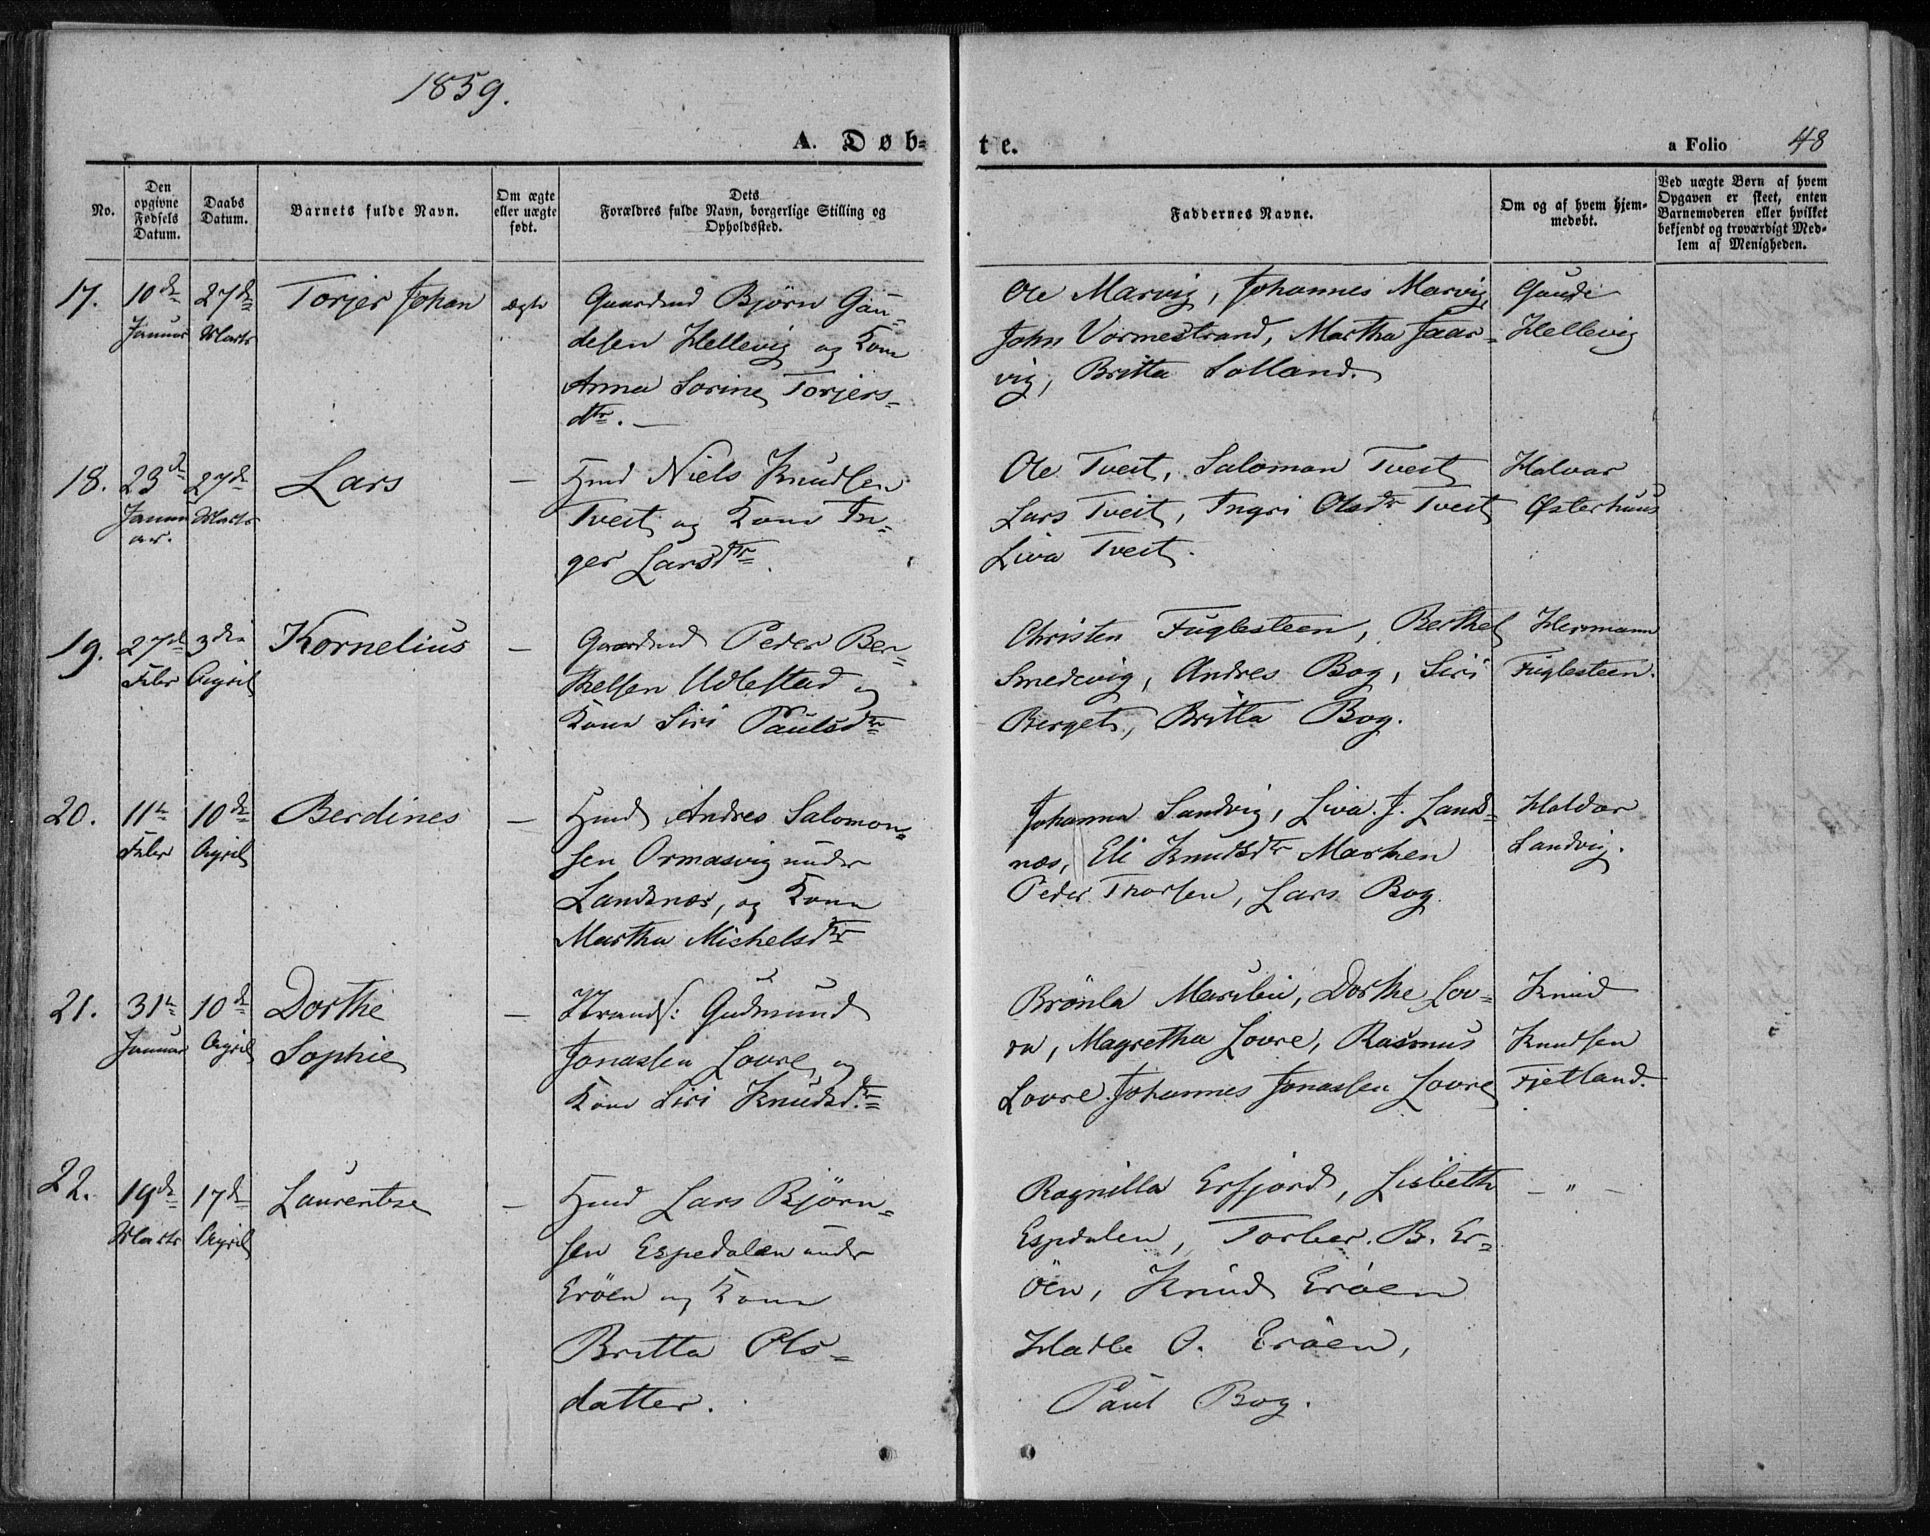 1859.
A. Døb-
te.
a Folio 48
No.
Den opgivne Fødsels Datum.
Daabs Datum.
Barnets fulde Navn.
Om ægte eller uægte født.
Dets
Forældres fulde Navn, borgerlige Stilling og
Opholdssted.
Faddernes Navne.
Om og af hvem hjem-
medøbt.
Ved uægte Børn af hvem
Opgaven er skeet, enten
Barnemoderen eller hvilket
bekjendt og troværdigt Med-
lem af Menigheden.
17. 10de Januar 27de Marts Torjer Johan ægte
Gaardmd Björn Gau-
desen Hellevig og Kone
Anna Sorine Torjers-
dtr. —
Ole Marvig, Johannes Marvig,
John Vormestrand, Martha Jaar-
vig, Britta Solland.
Gaude
Hellevig
18. 23d Januar. 27de Marts Lars —
Hmd Niels Knudsen
Tveit og Kone In-
ger Larsdtr.
Ole Tveit, Saloman Tveit
Lars Tveit, Ingri Olsdr Tveit
Liva Tveit.
Halvar
Østerhuus
19. 27d Febr 3die April Kornelius —
Gaardmd Peder Ber-
thelsen Udlestad og
Kone Siri Paulsdtr
Christen Fuglesteen, Berthel
Smedevig, Andres Bog, Siri
Berget, Britta Bog.
Hermann
Fuglesteen.
20. 11te Febr 10de April Berdines —
Hmd Andres Salomon-
sen Ormasvig under
Landsnæs, og Kone
Martha Michelsdtr
Johanna Sandvig, Liva J. Lands-
næs, Eli Knudsdtr Marken
Peder Thorsen, Lars Bog
Haldor
Sandvig.
21. 31te Januar 10de April Dorthe
Sophie —
Strands: Gudmund
Jonassen Lovre, og
Kone Siri Knudsdtr
Brönla Dorthe Lov-
ra, Magretha Lovre, Rasmus
Lovre. Johannes Jonassen Lovre
Knud
Knudsen
Fjetland.
22. 19de Marts 17de April Laurentse —
Hmd Lars Björn-
sen Espedalen under
Eröen og Kone
Britta Ols-
datter.
Ragnilla Erfjord, Lisbeth
Espedalen, Torber. B. Er-
öen, Knud Eröen
Hadle O. Eröen,
Paul Bog.
— " —